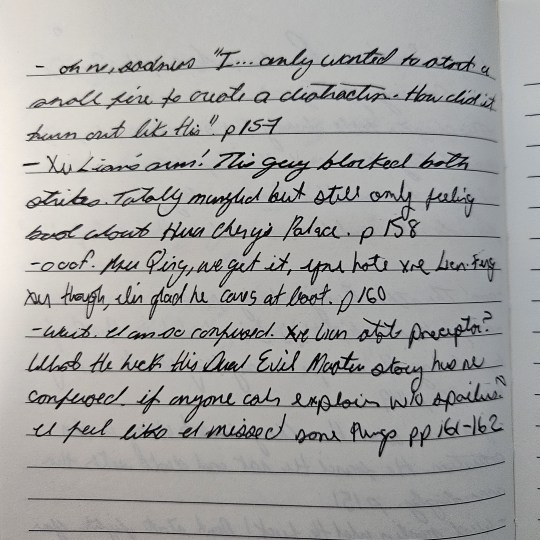 - oh no, sadness "I... only wanted to start a
small fire to create a distraction. How did it
turn out like this". p157
- Xu Lian's arm! This guy blocked both
strikes. Totally mangled but still only feeling
bad about Hua Cheng's Palace. p 158
- ooof. Mu Qing, we get it, you hate Xie Lian. Feng
Xin though, I'm glad he cares at least. p160
- Wait. I am so confused. Xie Lian state preceptor?
What the heck this Dual Evil Master story has me
confused if anyone can explain w/o spoilers?
I feel like I missed some things pp 161-162